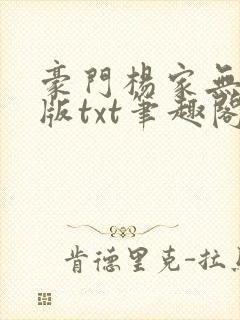 豪門楊家無
版txt筆趣閣
肯德里克-拉